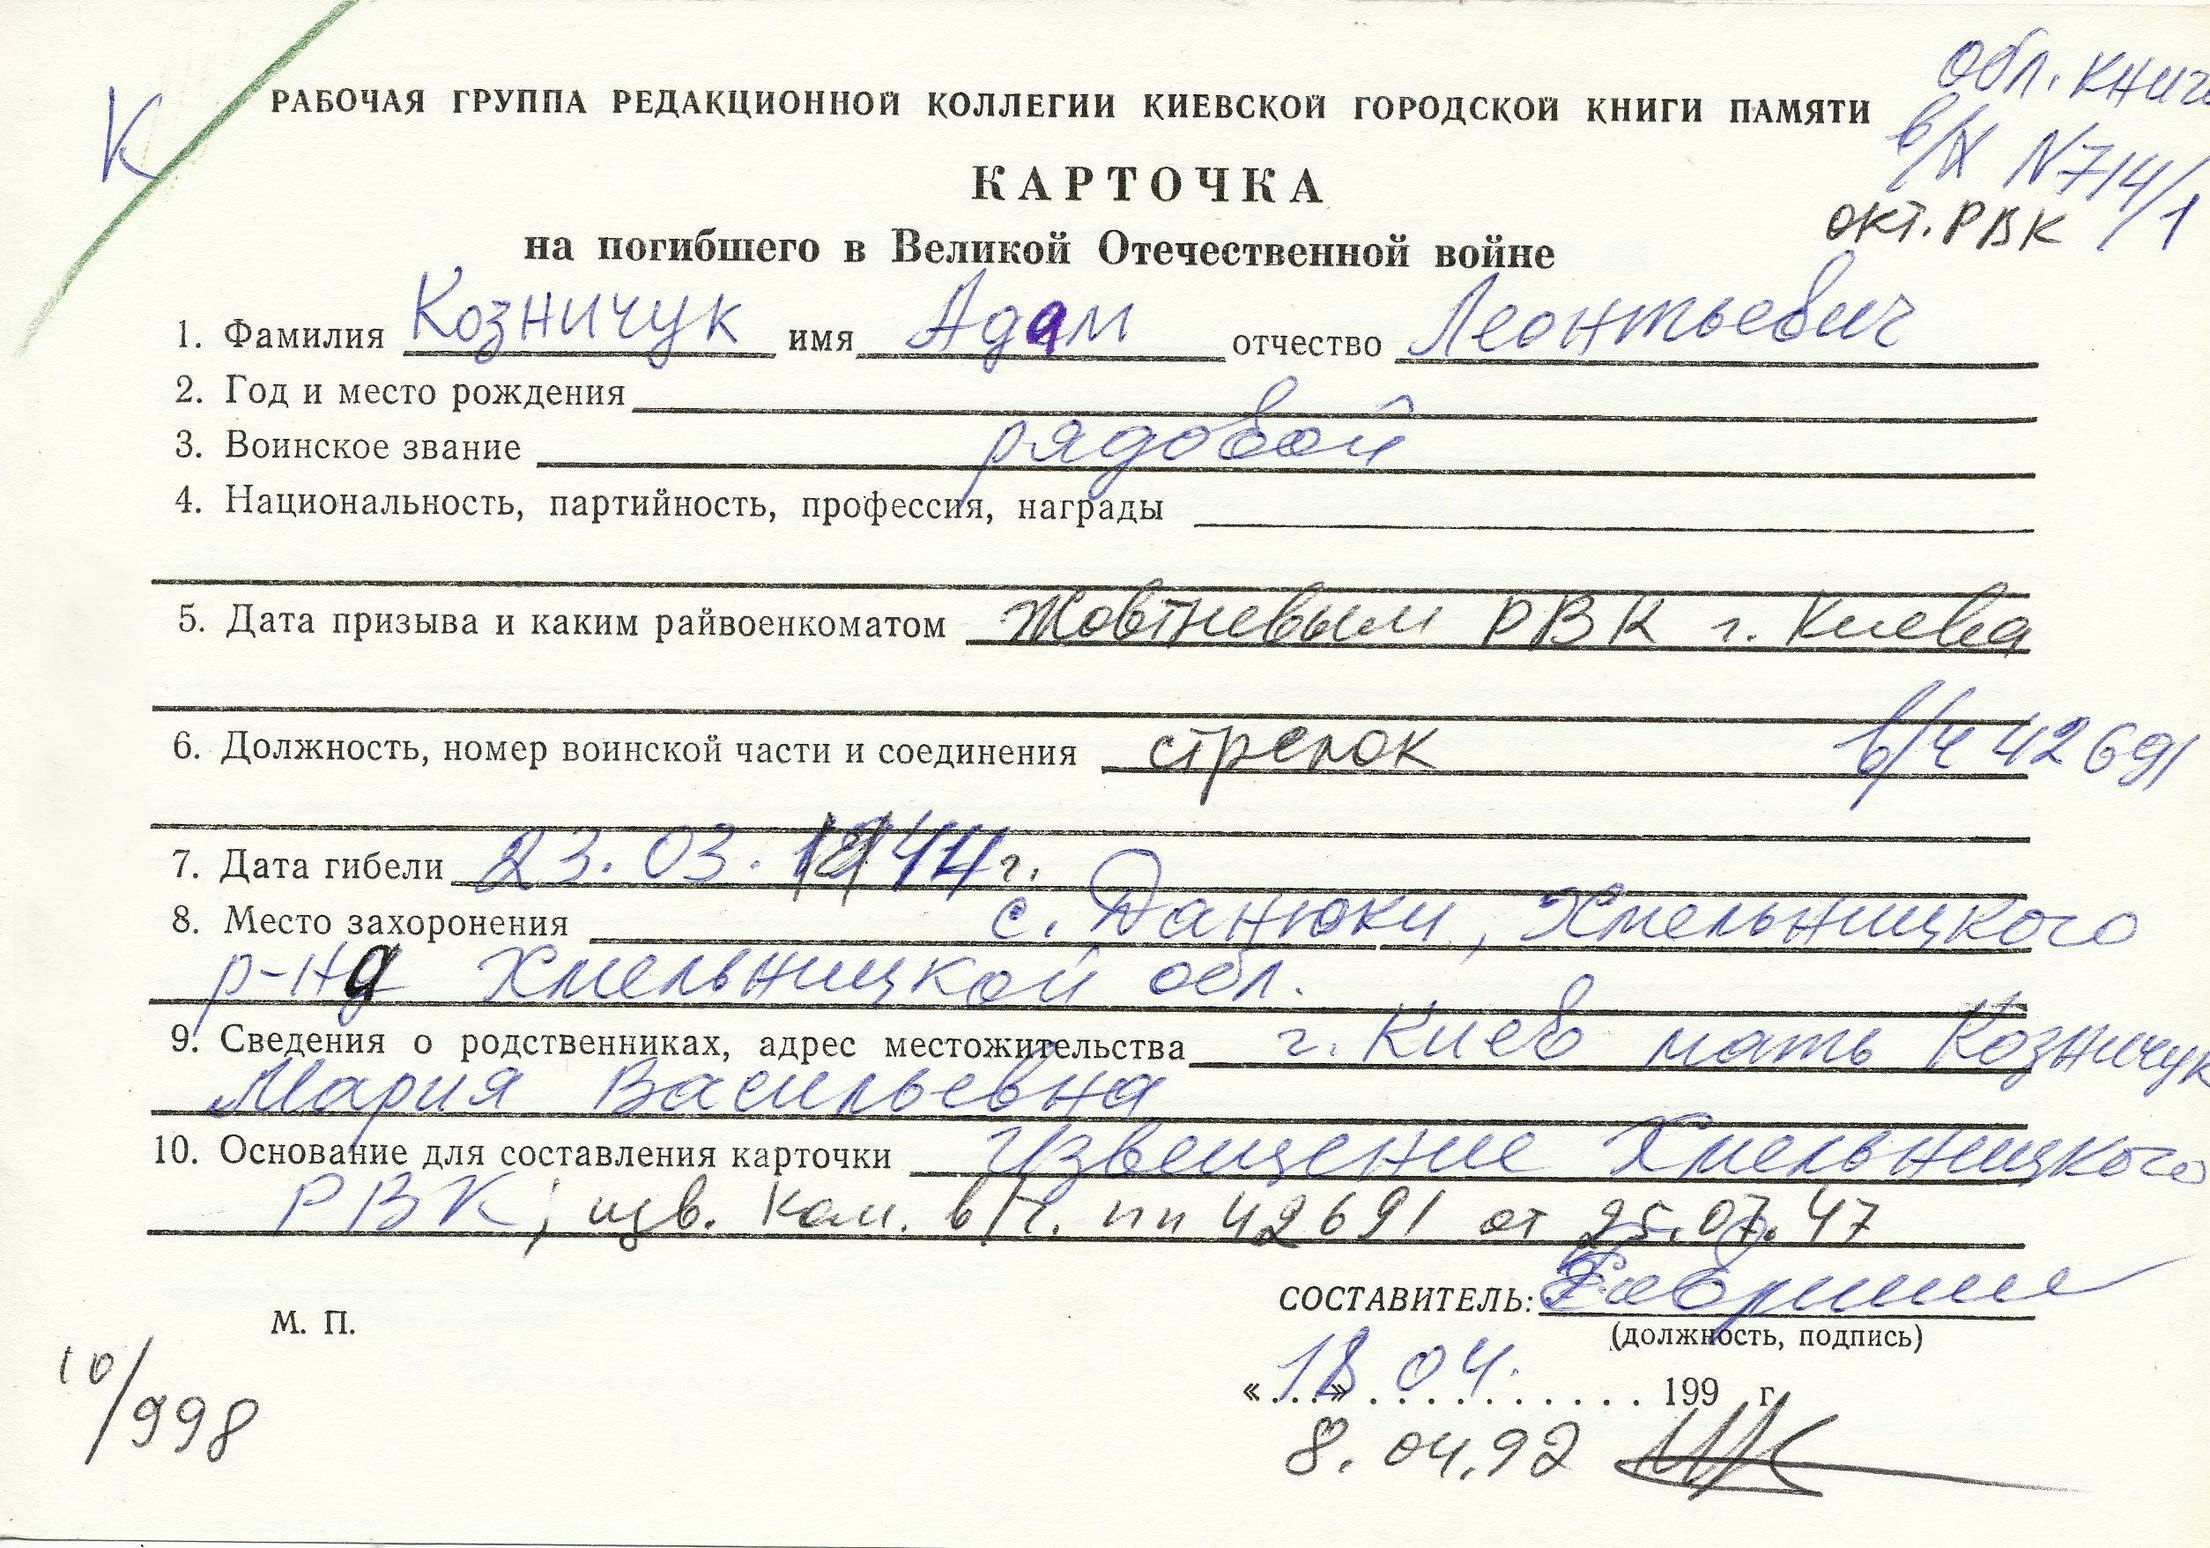 обл. книга
К
РАБОЧАЯ ГРУППА РЕДАКЦИОННОЙ КОЛЛЕГИИ КИЕВСКОЙ ГОРОДСКОЙ КНИГИ ПАМЯТИ
N 714/1
КАРТОЧКА
окт. РВК
на погибшего в Великой Отечественной войне
1. Фамилия Козничук имя Адам отчество Леонтьевич
2. Год и место рождения
3. Воинское звание рядовой
4. Национальность, партийность, профессия, награды
5. Дата призыва и каким райвоенкоматом Жовтневым РВК г. Киева
6. Должность, номер воинской части и соединения стрелок в/ч 42691
7. Дата гибели 23.03.1944 г.
8. Место захоронения с. Данюки, Хмельницкого
р-на Хмельницкой обл.
9. Сведения о родственниках, адрес местожительства г. Киев мать Козничук
Мария Васильевна
10. Основание для составления карточки Извещение Хмельницкого
РВК; изв. ком. в/ч. пп 42691 от 25.07.47
СОСТАВИТЕЛЬ:
М. П.
(должность, подпись)
«18» 04. 199 г.
10/998
8.04.92